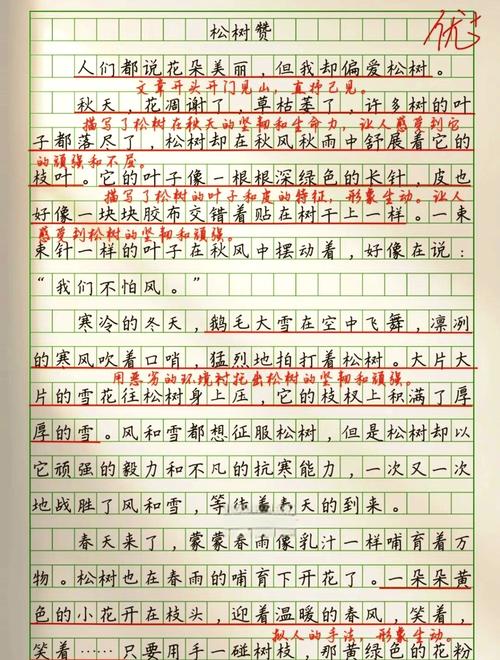 优+
松树赞
人们都说花朵美丽，但我却偏爱松树。
文章开头开门见山，直抒己见。
秋天，花凋谢了，草枯萎了，许多树的叶
描写了松树在秋天的坚韧和生命力，让人感受到它
子都落尽了，松树却在秋风秋雨中舒展着它的
的顽强和不屈。
枝叶。它的叶子像一根根深绿色的长针，皮也
描写了松树的叶子和皮的特征，形象生动。让人
好像一块块胶布交错着贴在树干上一样。一束
感受到松树的坚韧和顽强。
束针一样的叶子在秋风中摆动着，好像在说：
“我们不怕风。”
寒冷的冬天，鹅毛大雪在空中飞舞，凛冽
的寒风吹着口哨，猛烈地拍打着松树。大片大
用恶劣的环境衬托出松树的坚韧和顽强。
片的雪花往松树身上压，它的枝杈上积满了厚
厚的雪。风和雪都想征服松树，但是松树却以
它顽强的毅力和不凡的抗寒能力，一次又一次
地战胜了风和雪，等待着春天的到来。
春天来了，蒙蒙春雨像乳汁一样哺育着万
物。松树也在春雨的哺育下开花了。一朵朵黄
色的小花开在枝头，迎着温暖的春风，笑着，
拟人的手法，形象生动。
笑着……只要用手一碰树枝，那黄绿色的花粉